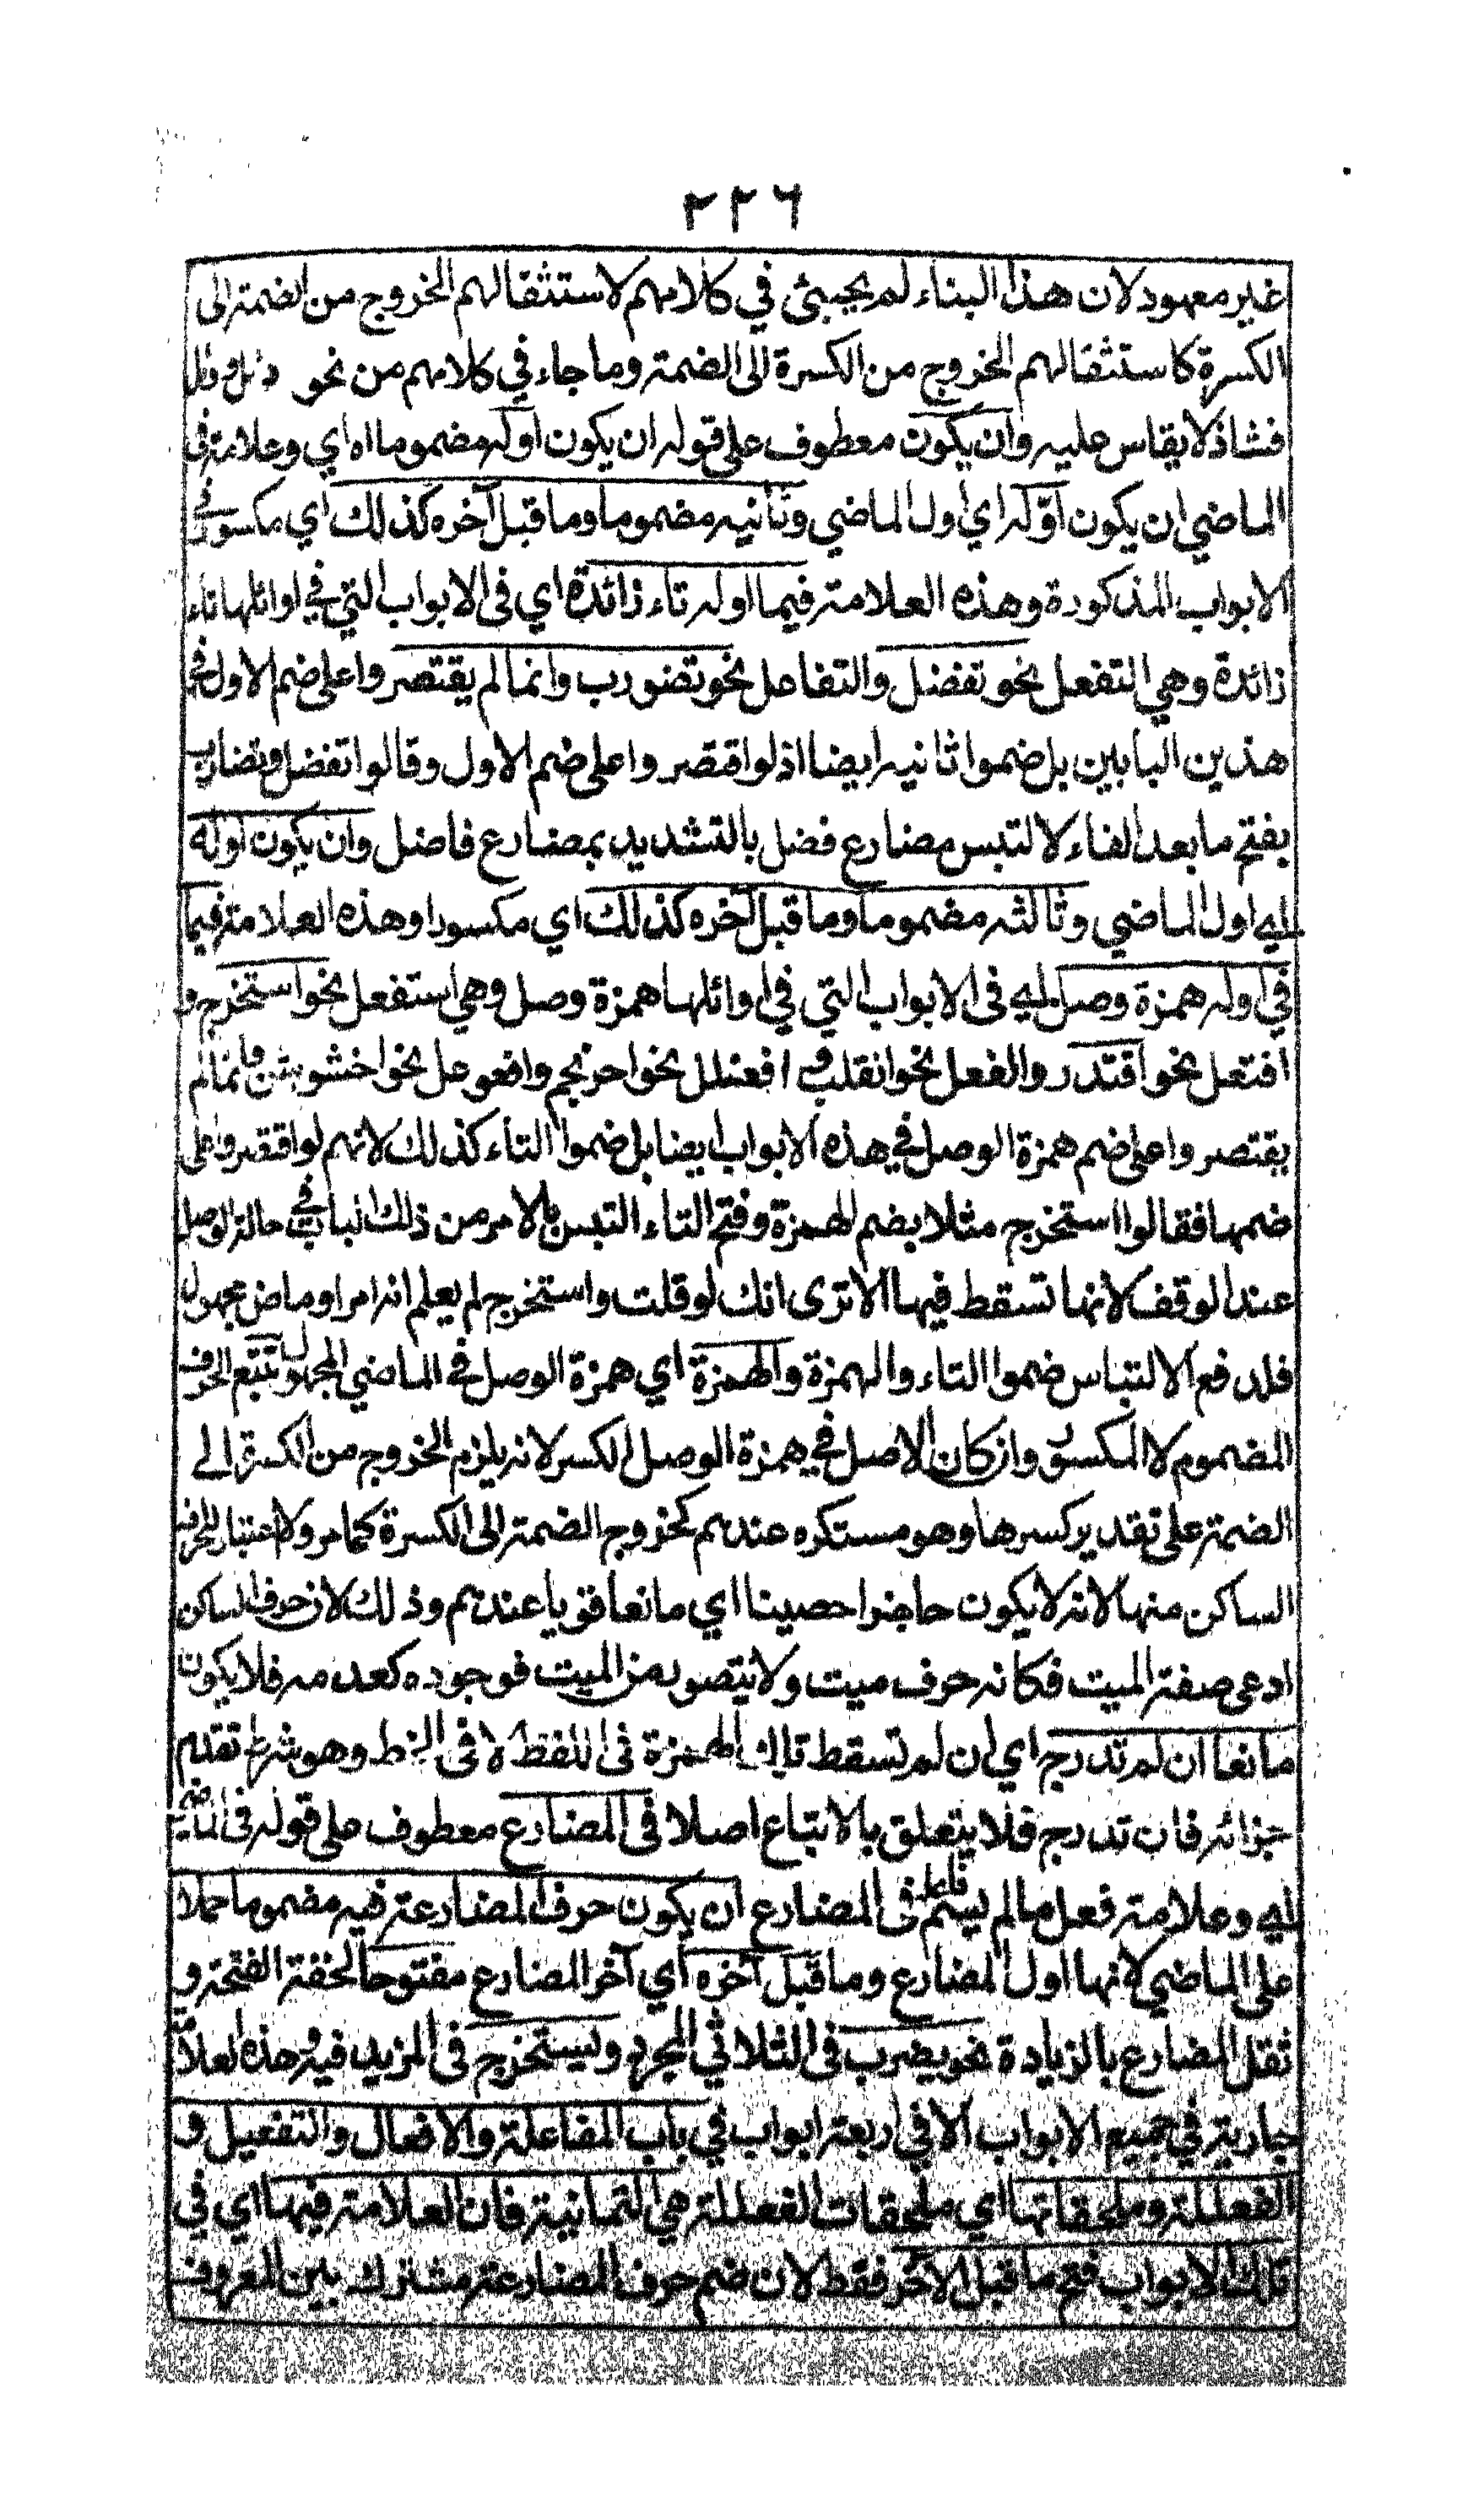 ٢٢٦
غير معهود لان هذا البناء لم يجيئ في كلامهم لاستثقالهم الخروج من الضمة الى
الكسرة كاستثقالهم الخروج من الكسرة الى الضمة وما جاء في كلامهم من نحو
فشاذ لا يقاس عليه وان يكون معطوف على قوله ان يكون اوله مضموما اه اي وعلامته في
الماضي ان يكون اوّله اي اول الماضي وثانيه مضموما وما قبل آخره كذلك اي مكسور في
الابواب المذكورة وهذه العلامة فيما اوله تاء زائدة اي فى الابواب التي في اوائلها تاء
زائدة وهي التفعل نحو تفضل والتفاعل نحو تضورب وانما لم يقتصر وا على ضم الاول في
هذين البابين بل ضموا ثانيه ايضا اذ لو اقتصر وا على ضم الاول وقالوا تفضل وتضارب
بفتح ما بعد الفاء لالتبس مضارع فضل بالتشديد بمضارع فاضل وان يكون اوله
اي اول الماضي وثالثه مضموما وما قبل آخره كذلك اي مكسورا وهذه العلامة فيما
في اوله همزة وصل اي فى الابواب التي في اوائلها همزة وصل وهي استفعل نحو استخرج و
افتعل نحو اقتدر والفعل نحو انقلب و افعنلل نحو احرنجم وافعوعل نحو اخشوشن وانما لم
يقتصر وا على ضم همزة الوصل في هذه الابواب ايضا بل ضموا التاء كذلك لانهم لو اقتصروا على
ضمها فقالوا استخرج مثلا بضم الهمزة وفتح التاء التبس بالامر من ذلك الباب في حالة الوصل
عند الوقف لانها تسقط فيها الا ترى انك لو قلت واستخرج لم يعلم انه امر او ماض مجهول
فلدفع الالتباس ضموا التاء والهمزة والهمزة اي همزة الوصل في الماضي المجهول تتبع الحرف
المضموم لا المكسور وان كان الاصل في همزة الوصل الكسر لانه يلزم الخروج من الكسرة الى
الضمة على تقدير كسرها وهو مستكره عندهم كخروج الضمة الى الكسرة كما مر ولا اعتبار للحرف
الساكن منها لانه لا يكون حاضرا حصينا اي مانعا قويا عندهم وذلك لان حرف الساكن
ادعى صفة الميت فكانه حرف ميت ولا يتصور من الميت فوجوده كعدمه فلا يكون
مانعا ان لم تدرج اي ان لم تسقط تلك الهمزة فى اللفظ لا فى الخط وهو شرط تقديم
جزائه فان تدرج فلا يتعلق بالاتباع اصلا فى المضارع معطوف على قوله فى الماضي
اي وعلامة فعل ما لم يسم فاعله فى المضارع ان يكون حرف المضارعة فيه مضموما حملا
على الماضي لانها اول المضارع وما قبل آخره اي آخر المضارع مفتوحا لخفة الفتحة و
ثقل المضارع بالزيادة نحو يضرب فى الثلاثي المجرد وليستخرج فى المزيد فيه وهذه العلا
جارية في جميع الابواب الا في اربعة ابواب في باب المفاعلة والافعال والتفعيل و
الفعللة وملحقاتها اي ملحقات الفعللة هي الثمانية فان العلامة فيها اي في
تلك الابواب فتح ما قبل الآخر فقط لان ضم حرف المضارعة مشترك بين المعروف